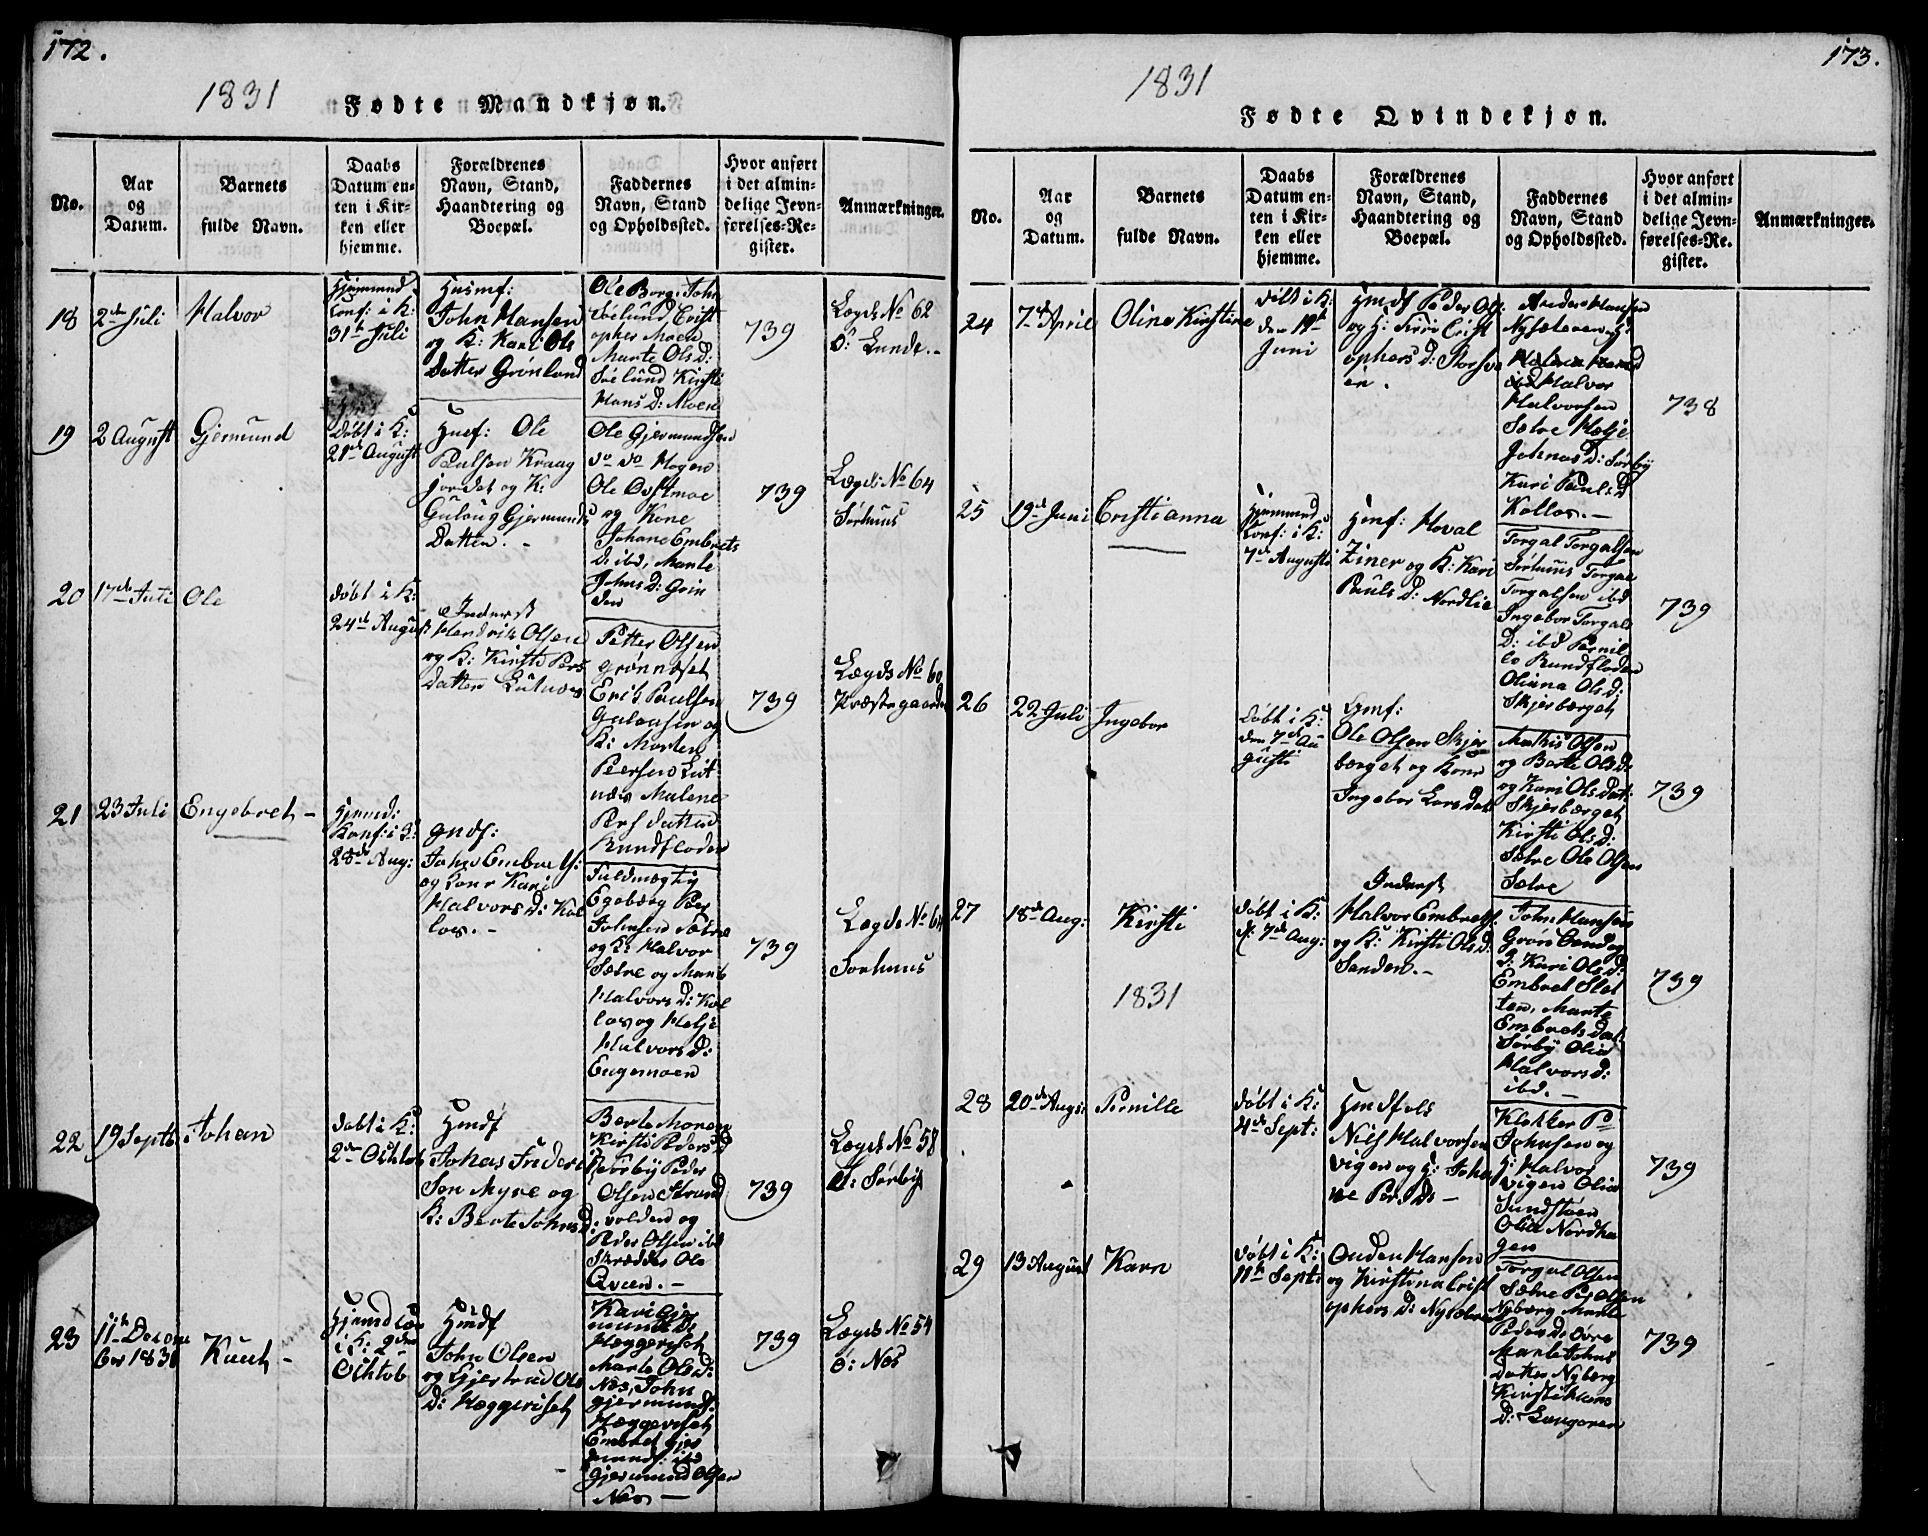 172.
1831
Fødte Mandkjøn.
No.
Aar
og
Datum.
Barnets
fulde Navn.
Daabs
Datum en-
ten i Kir-
ken eller
hjemme.
Forældrenes
Navn, Stand,
Haandtering og
Boepæl.
Faddernes
Navn, Stand
og Opholdssted.
Hvor anført
i det almin-
delige Jevn-
førelses-Re-
gister.
Anmærkninger.
18
2de Juli
Halvor
Hjemmed
Conf: i K:
31te Juli
Husmf:
John Hansen
og K: Kari Ols
Datter Grönland
Ole Borg: John
Söelund Crist
opher Moen
Marte Ols D:
Söelund Kirsti
Hans D: Moen
739
Lægds No 62
Ö: Lunde.-
19
2 August
Gjermund
Døbt i K:
21de August
Husf: Ole
Paulsen Kraag
jordet og K:
Gulaug Gjermunds
Datter. -
Ole Gjermundsen
do do Mogen
Ole Östmoe
og Kone
Johane Embrets
D: ibd, Marte
Johns D: Grin
den
739
Lægds No 64
Sørhuus
20
17de Juli
Ole
døbt i K:
24de August
Inderst
Hendrik Olsen
og K: Kirsti Pers
Datter Lutnæs
Petter Olsen
Grønnæset
Erik Paulsen
K: Morten
Peersen Lut
næs Malene
Pers datter
Rundfloden
739
Lægds No 60
Præstegaarden
21
23 Juli
Engebret -
Hjemd:
Konf: i K:
28de Aug:
Gmdf:
John Embrets:
og Kone Kari
Halvors D: Kol
los. -
Fuldmægtig
Egeberg Per
Johnsen Sætre
og K: Halvor
Sætre og Marte
Halvors D: Kol
los og Helje
Halvors D:
Engemoen
739
Lægds No 64
Sørhuus
22
19 Septb
Johan
døbt i K:
2den Ocktob
Hmdf
Johas Frideri
Sen Myre og
K: Berte Johns D:
Berte Moren
Kirsti Peders D
Sørby Peder
Olsen Strand
volden og
Peder Olsen ibd
Skrædder Ole
Qveen. -
739
Lægds No 58
Ö: Sørby
23
11te Decem
ber 1830
Knut -
Hjemd
i K: 2den
Ocktob
Hmdf
John Olsen
og Gjertrud Ols
D: Hæggeriset
Kari Gjer
munds D:
Hæggeriset
Marte Ols D:
Næs, John
Gjermunds:
Hæggeriset
Embret Gjer
munds: ibd
Gjermund Olsen
Næs -
739
Lægds No 54
Ö: Næs
173.
1831
Fødte Qvindekjøn.
No.
Aar
og
Datum.
Barnets
fulde Navn.
Daabs
Datum en-
ten i Kir-
ken eller
hjemme.
Forældrenes
Navn, Stand,
Haandtering og
Boepæl.
Faddernes
Navn, Stand
og Opholdssted.
Hvor anført
i det almin-
delige Jevn-
førelses-Re-
gister.
Anmærkninger.
24
7de April
Oline Kirstine
døbt i K:
den 19de
Juni
Hmdf Peder Ols:
og H: Siri Crist
ophers D: Storsve
en.
Anders Hansen
Nysæteren
Halvor
Halvorsen
Sætre Helje
Johnas D: Sørby
Kari Pauls D
Kollos. -
738
25
19de Juni
Cristianna
Hjemmed
Conf: i K:
7de August
Hmf: Hoval
Ziner og K: Kari
Pauls D: Nordlie
Torgal Torgalsen
Sørhuus Torgal
Torgalsen ibd
Ingebor Torgals
D: ibd Pernil
le Rundfloden
Oliana Ols D:
Skjerbærget
739
26
22 Juli
Ingebor
Døbt i K:
den 7de Au
gusti
Gmf:
Ole Olsen Skjer
bærget og Kone
Ingebor Lars dat
Mathis Olsen
og Berte Ols D:
og Kari Ols dat:
Skjerbærget
Kirsti Ols D:
Sætre Ole Olsen
Sætre
739
27
18de Aug:
Kirsti
1831
døbt i K:
d: 7de Aug:
Inderst
Halvor Embrets:
og K: Kirsti Ols D:
Sanden. -
John Hansen
Grönland og
K: Kari Ols D:
Embret Slet
ten, Marte
Embrets Dat
Sørby Olia
Halvors D:
ibd. -
739
28
20de Augs:
Pernille
døbt i K:
4de Sept:
Hmdfols
Nils Halvorsen
Vigen og H: Joha
ne Pers D: -
Klokker P:
Johnsen og
H: Halvor
Vigen Olia
Sundstöen
Olia Nordha
gen
739
29
13 August
Karn
døbt i K:
11te Sept:
Ouden Hansen
og Kirstina Crist
ophers D: Nysæter
Torgal Olsen
Sætre Per Olsen
Nyberg Marte
Peders D: Øvre
Marte Johns
datter Nyberg
Kirsti Hans
D: Langoren
739